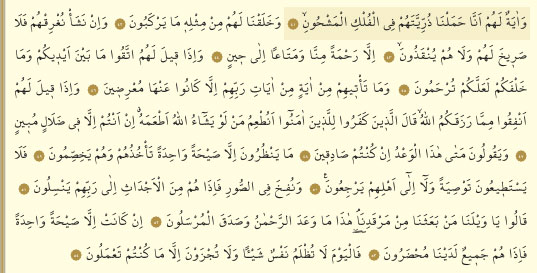 وَاٰيَةٌ لَهُمْ اَنَّا حَمَلْنَا ذُرِّيَّتَهُمْ فِي الْفُلْكِ الْمَشْحُونِۙ ﴿٤١﴾ وَخَلَقْنَا لَهُمْ مِنْ مِثْلِه۪ مَا يَرْكَبُونَ ﴿٤٢﴾ وَاِنْ نَشَأْ نُغْرِقْهُمْ فَلَا
صَر۪يخَ لَهُمْ وَلَا هُمْ يُنْقَذُونَۙ ﴿٤٣﴾ اِلَّا رَحْمَةً مِنَّا وَمَتَاعًا اِلٰى ح۪ينٍ ﴿٤٤﴾ وَاِذَا ق۪يلَ لَهُمُ اتَّقُوا مَا بَيْنَ اَيْد۪يكُمْ وَمَا
خَلْفَكُمْ لَعَلَّكُمْ تُرْحَمُونَ ﴿٤٥﴾ وَمَا تَأْت۪يهِمْ مِنْ اٰيَةٍ مِنْ اٰيَاتِ رَبِّهِمْ اِلَّا كَانُوا عَنْهَا مُعْرِض۪ينَ ﴿٤٦﴾ وَاِذَا ق۪يلَ لَهُمْ
اَنْفِقُوا مِمَّا رَزَقَكُمُ اللّٰهُۙ قَالَ الَّذ۪ينَ كَفَرُوا لِلَّذ۪ينَ اٰمَنُٓوا اَنُطْعِمُ مَنْ لَوْ يَشَٓاءُ اللّٰهُ اَطْعَمَهُۗ اِنْ اَنْتُمْ اِلَّا ف۪ي ضَلَالٍ مُب۪ينٍ
﴿٤٧﴾ وَيَقُولُونَ مَتٰى هٰذَا الْوَعْدُ اِنْ كُنْتُمْ صَادِق۪ينَ ﴿٤٨﴾ مَا يَنْظُرُونَ اِلَّا صَيْحَةً وَاحِدَةً تَأْخُذُهُمْ وَهُمْ يَخِصِّمُونَ ﴿٤٩﴾ فَلَا
يَسْتَط۪يعُونَ تَوْصِيَةً وَلَٓا اِلٰٓى اَهْلِهِمْ يَرْجِعُونَ۟ ﴿٥٠﴾ وَنُفِخَ فِي الصُّورِ فَاِذَا هُمْ مِنَ الْاَجْدَاثِ اِلٰى رَبِّهِمْ يَنْسِلُونَ ﴿٥١﴾
قَالُوا يَا وَيْلَنَا مَنْ بَعَثَنَا مِنْ مَرْقَدِنَاۢ هٰذَا مَا وَعَدَ الرَّحْمٰنُ وَصَدَقَ الْمُرْسَلُونَ ﴿٥٢﴾ اِنْ كَانَتْ اِلَّا صَيْحَةً وَاحِدَةً
فَاِذَا هُمْ جَم۪يعٌ لَدَيْنَا مُحْضَرُونَ ﴿٥٣﴾ فَالْيَوْمَ لَا تُظْلَمُ نَفْسٌ شَيْـًٔا وَلَا تُجْزَوْنَ اِلَّا مَا كُنْتُمْ تَعْمَلُونَ ﴿٥٤﴾